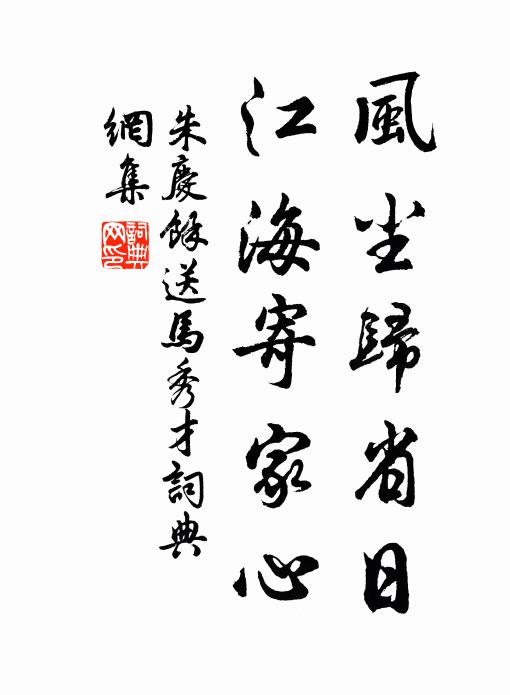 風尘歸省日
江海寄家心
朱慶餘送馬秀才詞典
網集
詞典
网印